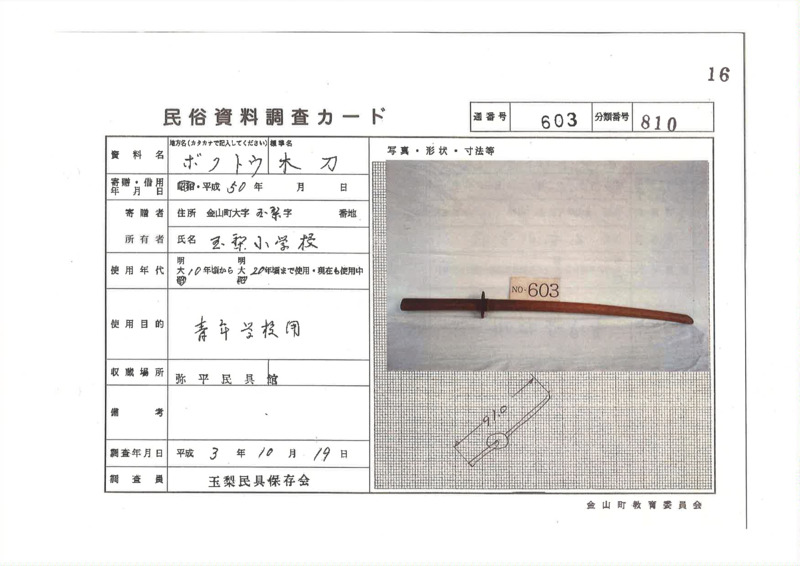 16
民俗資料調査カード
通番号 603 分類番号 810
資料名 地方名(カタカナで記入してください) ボクトウ 標準名 木刀
寄贈・借用年月日 昭和・平成 50年 月 日
寄贈者 住所 金山町大字 玉梨 字 番地
所有者 氏名 玉梨小学校
使用年代 明大昭 10年頃から 明大昭 20年頃まで使用・現在も使用中
使用目的 青年学校用
収蔵場所 弥平民具館
備考
調査年月日 平成 3年 10月 19日
調査員 玉梨民具保存会
写真・形状・寸法等
NO-603
91.0
金山町教育委員会